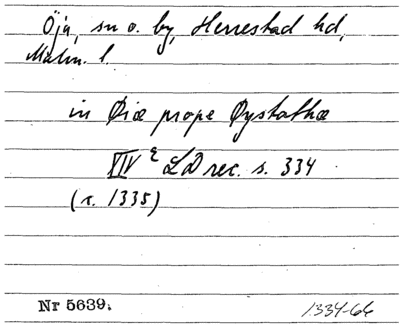 Öja, sn o. by, Herrestad hd,
Malm. l.
in Øiæ prope Øystathæ
XIV e LD rec. s. 334
(c. 1335)
Nr 5639.
1334-66